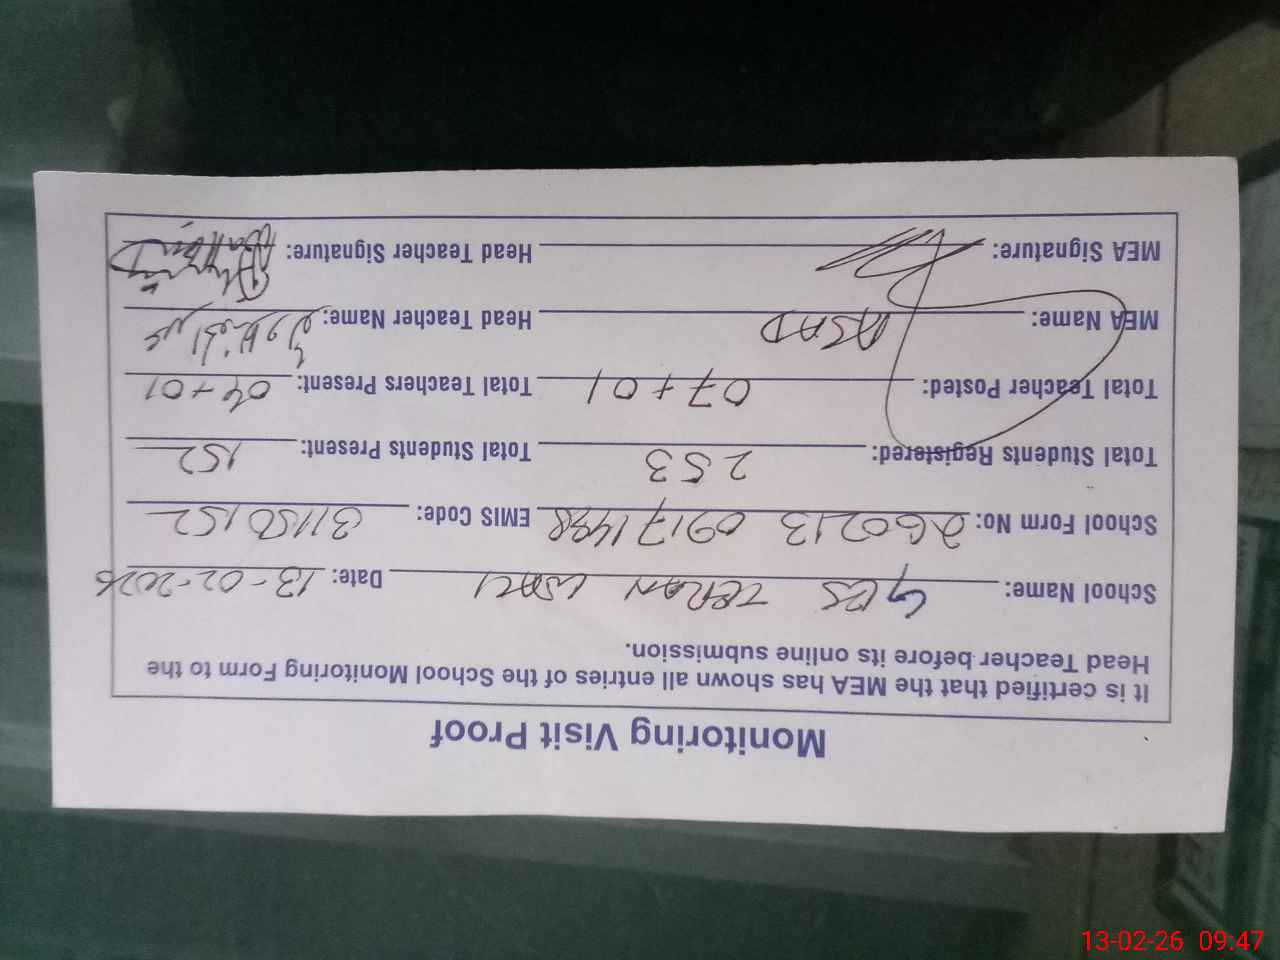 Monitoring Visit Proof
It is certified that the MEA has shown all entries of the School Monitoring Form to the
Head Teacher before its online submission.
School Name: GES JERAN WALI Date: 13-02-2026
School Form No: 260213 09171438 EMIS Code: 31150152
Total Students Registered: 253 Total Students Present: 152
Total Teacher Posted: 07+01 Total Teachers Present: 04+01
MEA Name: ASAD Head Teacher Name:
MEA Signature: Head Teacher Signature:
13-02-26 09:47